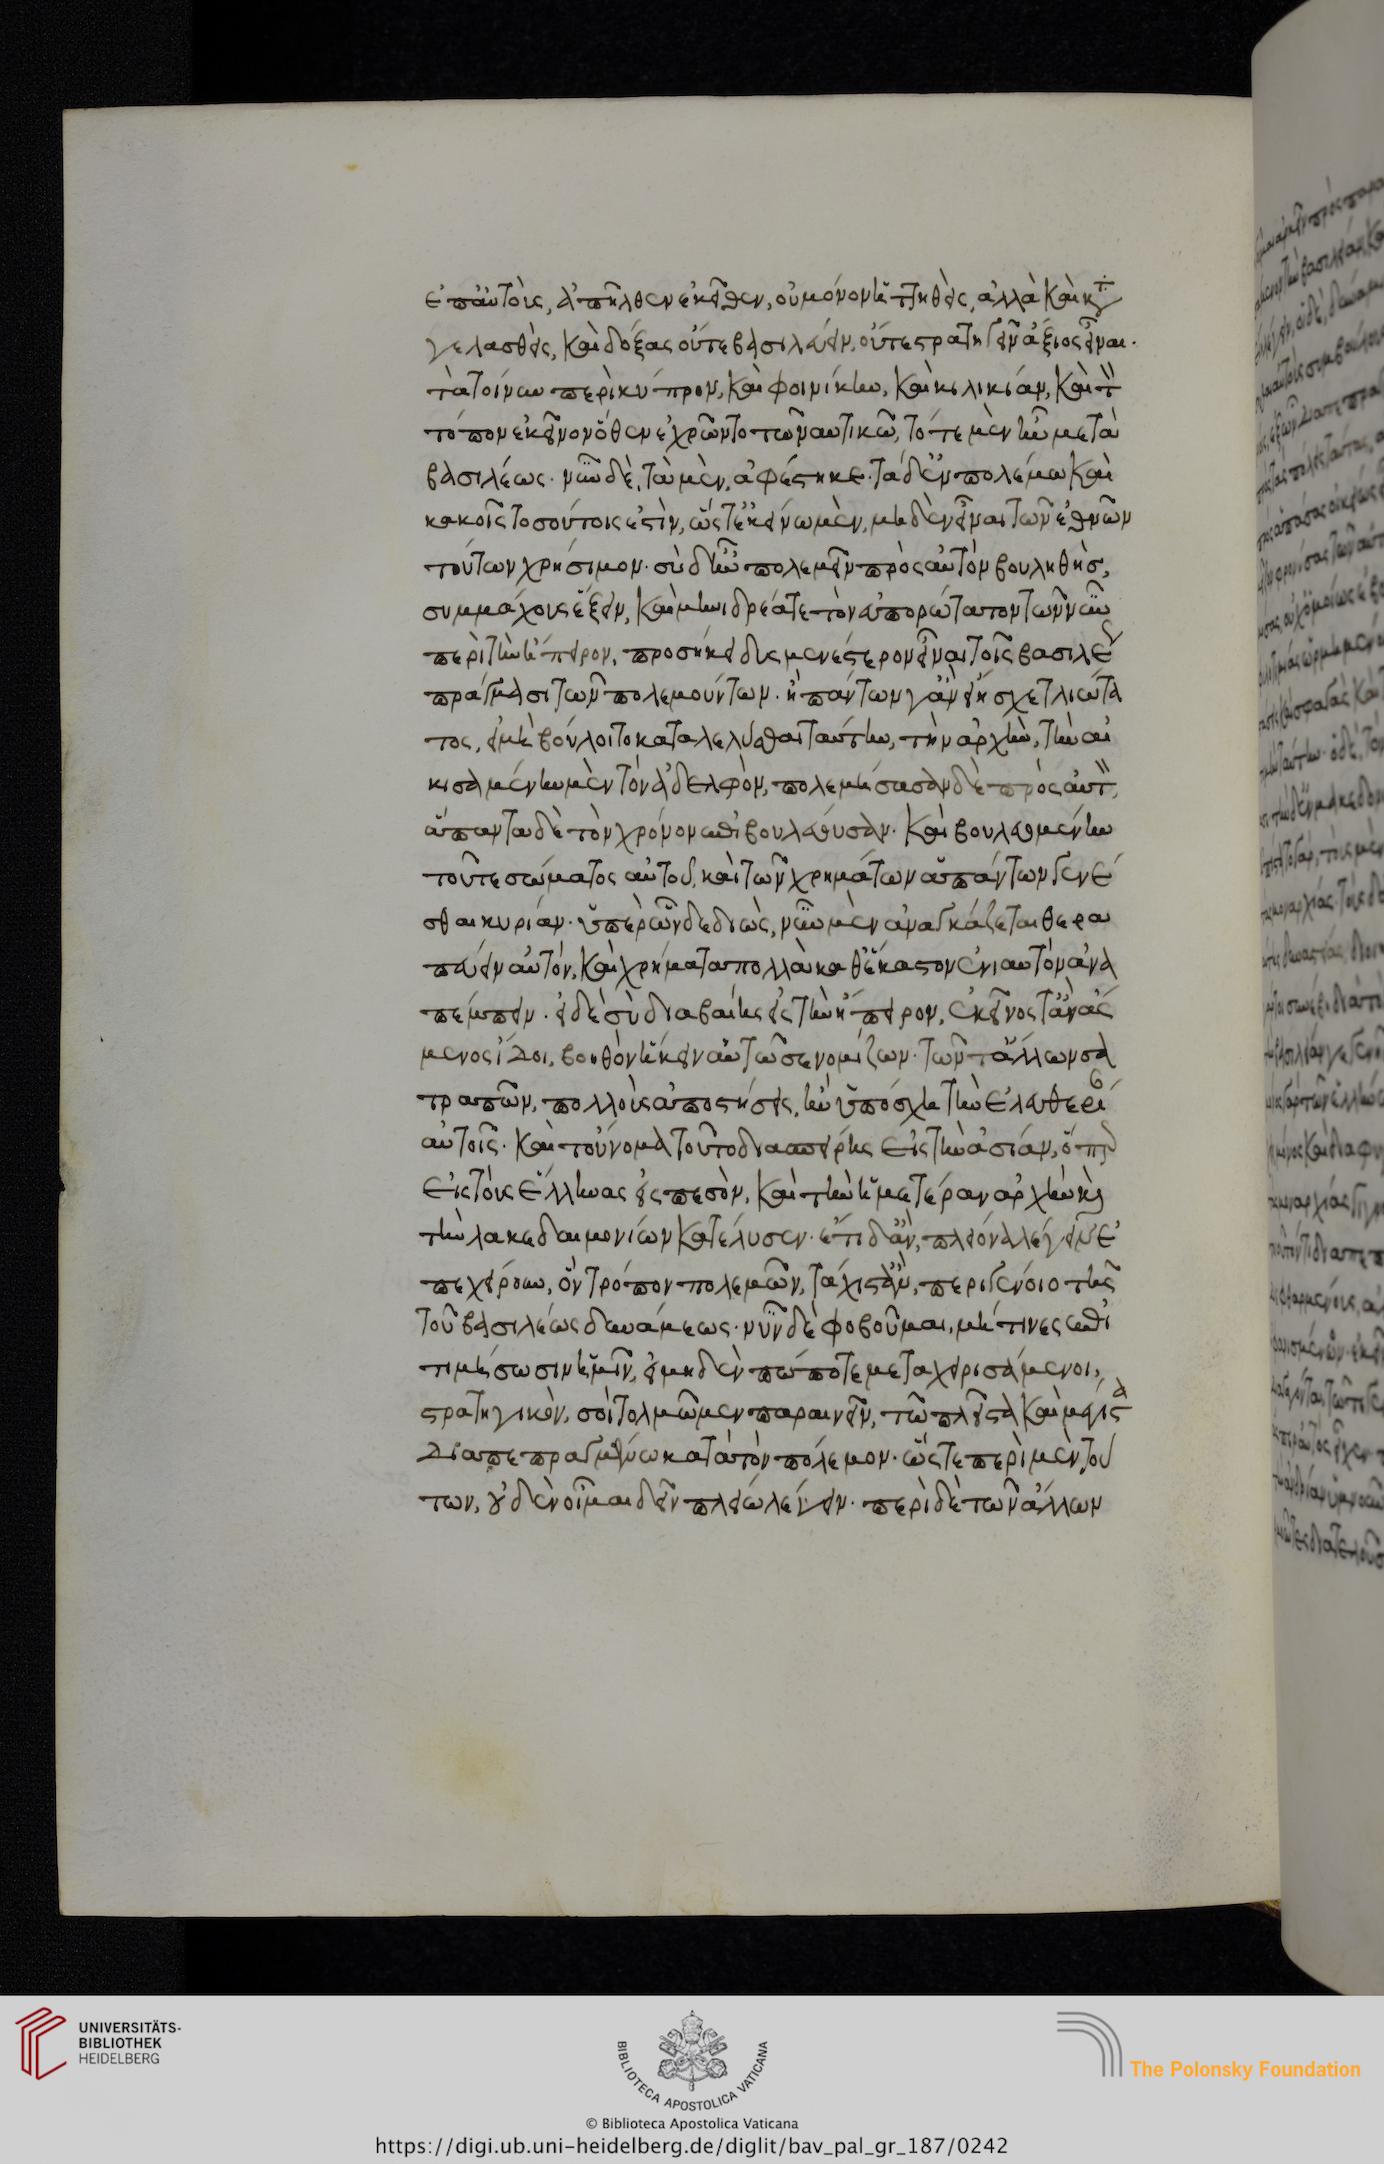 ἐπ' αὐτοῖς, ἀπῆλθεν ἐκεῖθεν, οὐ μόνον ἡττηθεὶς, ἀλλὰ καὶ κατα
γελασθεὶς, καὶ δόξας οὔτε βασιλεύειν, οὔτε στρατηγεῖν ἄξιος εἶναι.
τὰ τοίνυν περὶ κύπρον, καὶ φοινίκην, καὶ κιλικίαν, καὶ τὸν
τόπον ἐκεῖνον ὅθεν ἐχρῶντο τῷ ναυτικῷ, τότε μὲν ἦν μετὰ
βασιλέως. νῦν δὲ, τὰ μὲν, ἀφέστηκε. τὰ δ' ἐν πολέμω καὶ
κακοῖς τοσούτοις ἐστὶν, ὥστ' ἐκείνω μὲν, μηδὲν εἶναι τῶν ἐθνῶν
τούτων χρήσιμον. σὺ δ' ἢν πολεμεῖν πρὸς αὐτὸν βουληθῆς,
συμμάχους ἕξειν, καὶ μὴν ἰδριέα τε τὸν εὐπορώτατον τῶν νῦν
περὶ τὴν ἤπειρον, προσήκει δυσμενέστερον εἶναι τοῖς βασιλέως
πράγμασι τῶν πολεμούντων. ἢ πάντων γ' ἂν εἴη σχετλιώτα
τος, εἰ μὴ βούλοιτο καταλελύσθαι ταύτην, τὴν ἀρχὴν, τὴν αἰ
κισαμένην μὲν τὸν ἀδελφὸν, πολεμήσασαν δὲ πρὸς αὐτὸν,
ἅπαντα δὲ τὸν χρόνον ἐπιβουλεύουσαν. καὶ βουλομένην
τοῦ τε σώματος αὐτοῦ, καὶ τῶν χρημάτων ἁπάντων γενέ
σθαι κυρίαν. ὑπὲρ ὧν δεδιὼς, νῦν μὲν ἀναγκάζεται θερα
πεύειν αὐτὸν, καὶ χρήματα πολλὰ καθ' ἕκαστον ἐνιαυτὸν ἀνα
πέμπειν. εἰ δὲ σὺ διαβαίης εἰς τὴν ἤπειρον, ἐκεῖνός τ' ἂν ἄσ
μενος ἴδοι, βοηθὸν ἥκειν αὐτῶ σε νομίζων. τῶν τ' ἄλλων σα
τραπῶν, πολλοὺς ἀποστήσεις, ἢν ὑπόσχη τὴν ἐλευθερίαν
αὐτοῖς. καὶ τοὔνομα τοῦτο διασπείρης εἰς τὴν ἀσίαν, ὅπερ
εἰς τοὺς ἕλληνας εἰσπεσὸν, καὶ τὴν ἡμετέραν ἀρχὴν καὶ
τὴν λακεδαιμονίων κατέλυσεν. ἔτι δ' ἂν, πλείονα λέγειν ἐ
πεχείρουν, ὃν τρόπον πολεμῶν, τάχιστ' ἂν, περιγένοιο τῆς
τοῦ βασιλέως δυνάμεως. νῦν δὲ φοβοῦμαι, μή τινες ἐπι
τιμήσωσιν ἡμῖν, εἰ μηδὲν πώποτε μεταχειρισάμενοι,
στρατηγικὸν, σοὶ τολμῶμεν παραινεῖν, τῶ πλεῖστα καὶ μέγιστα
διαπεπραγμένω κατὰ τὸν πόλεμον. ὥστε περὶ μὲν τού
των, οὐδὲν οἶμαι δεῖν πλείω λέγειν. περὶ δὲ τῶν ἄλλων
UNIVERSITÄTS-
BIBLIOTHEK
HEIDELBERG
BIBLIOTECA APOSTOLICA VATICANA
The Polonsky Foundation
© Biblioteca Apostolica Vaticana
https://digi.ub.uni-heidelberg.de/diglit/bav_pal_gr_187/0242